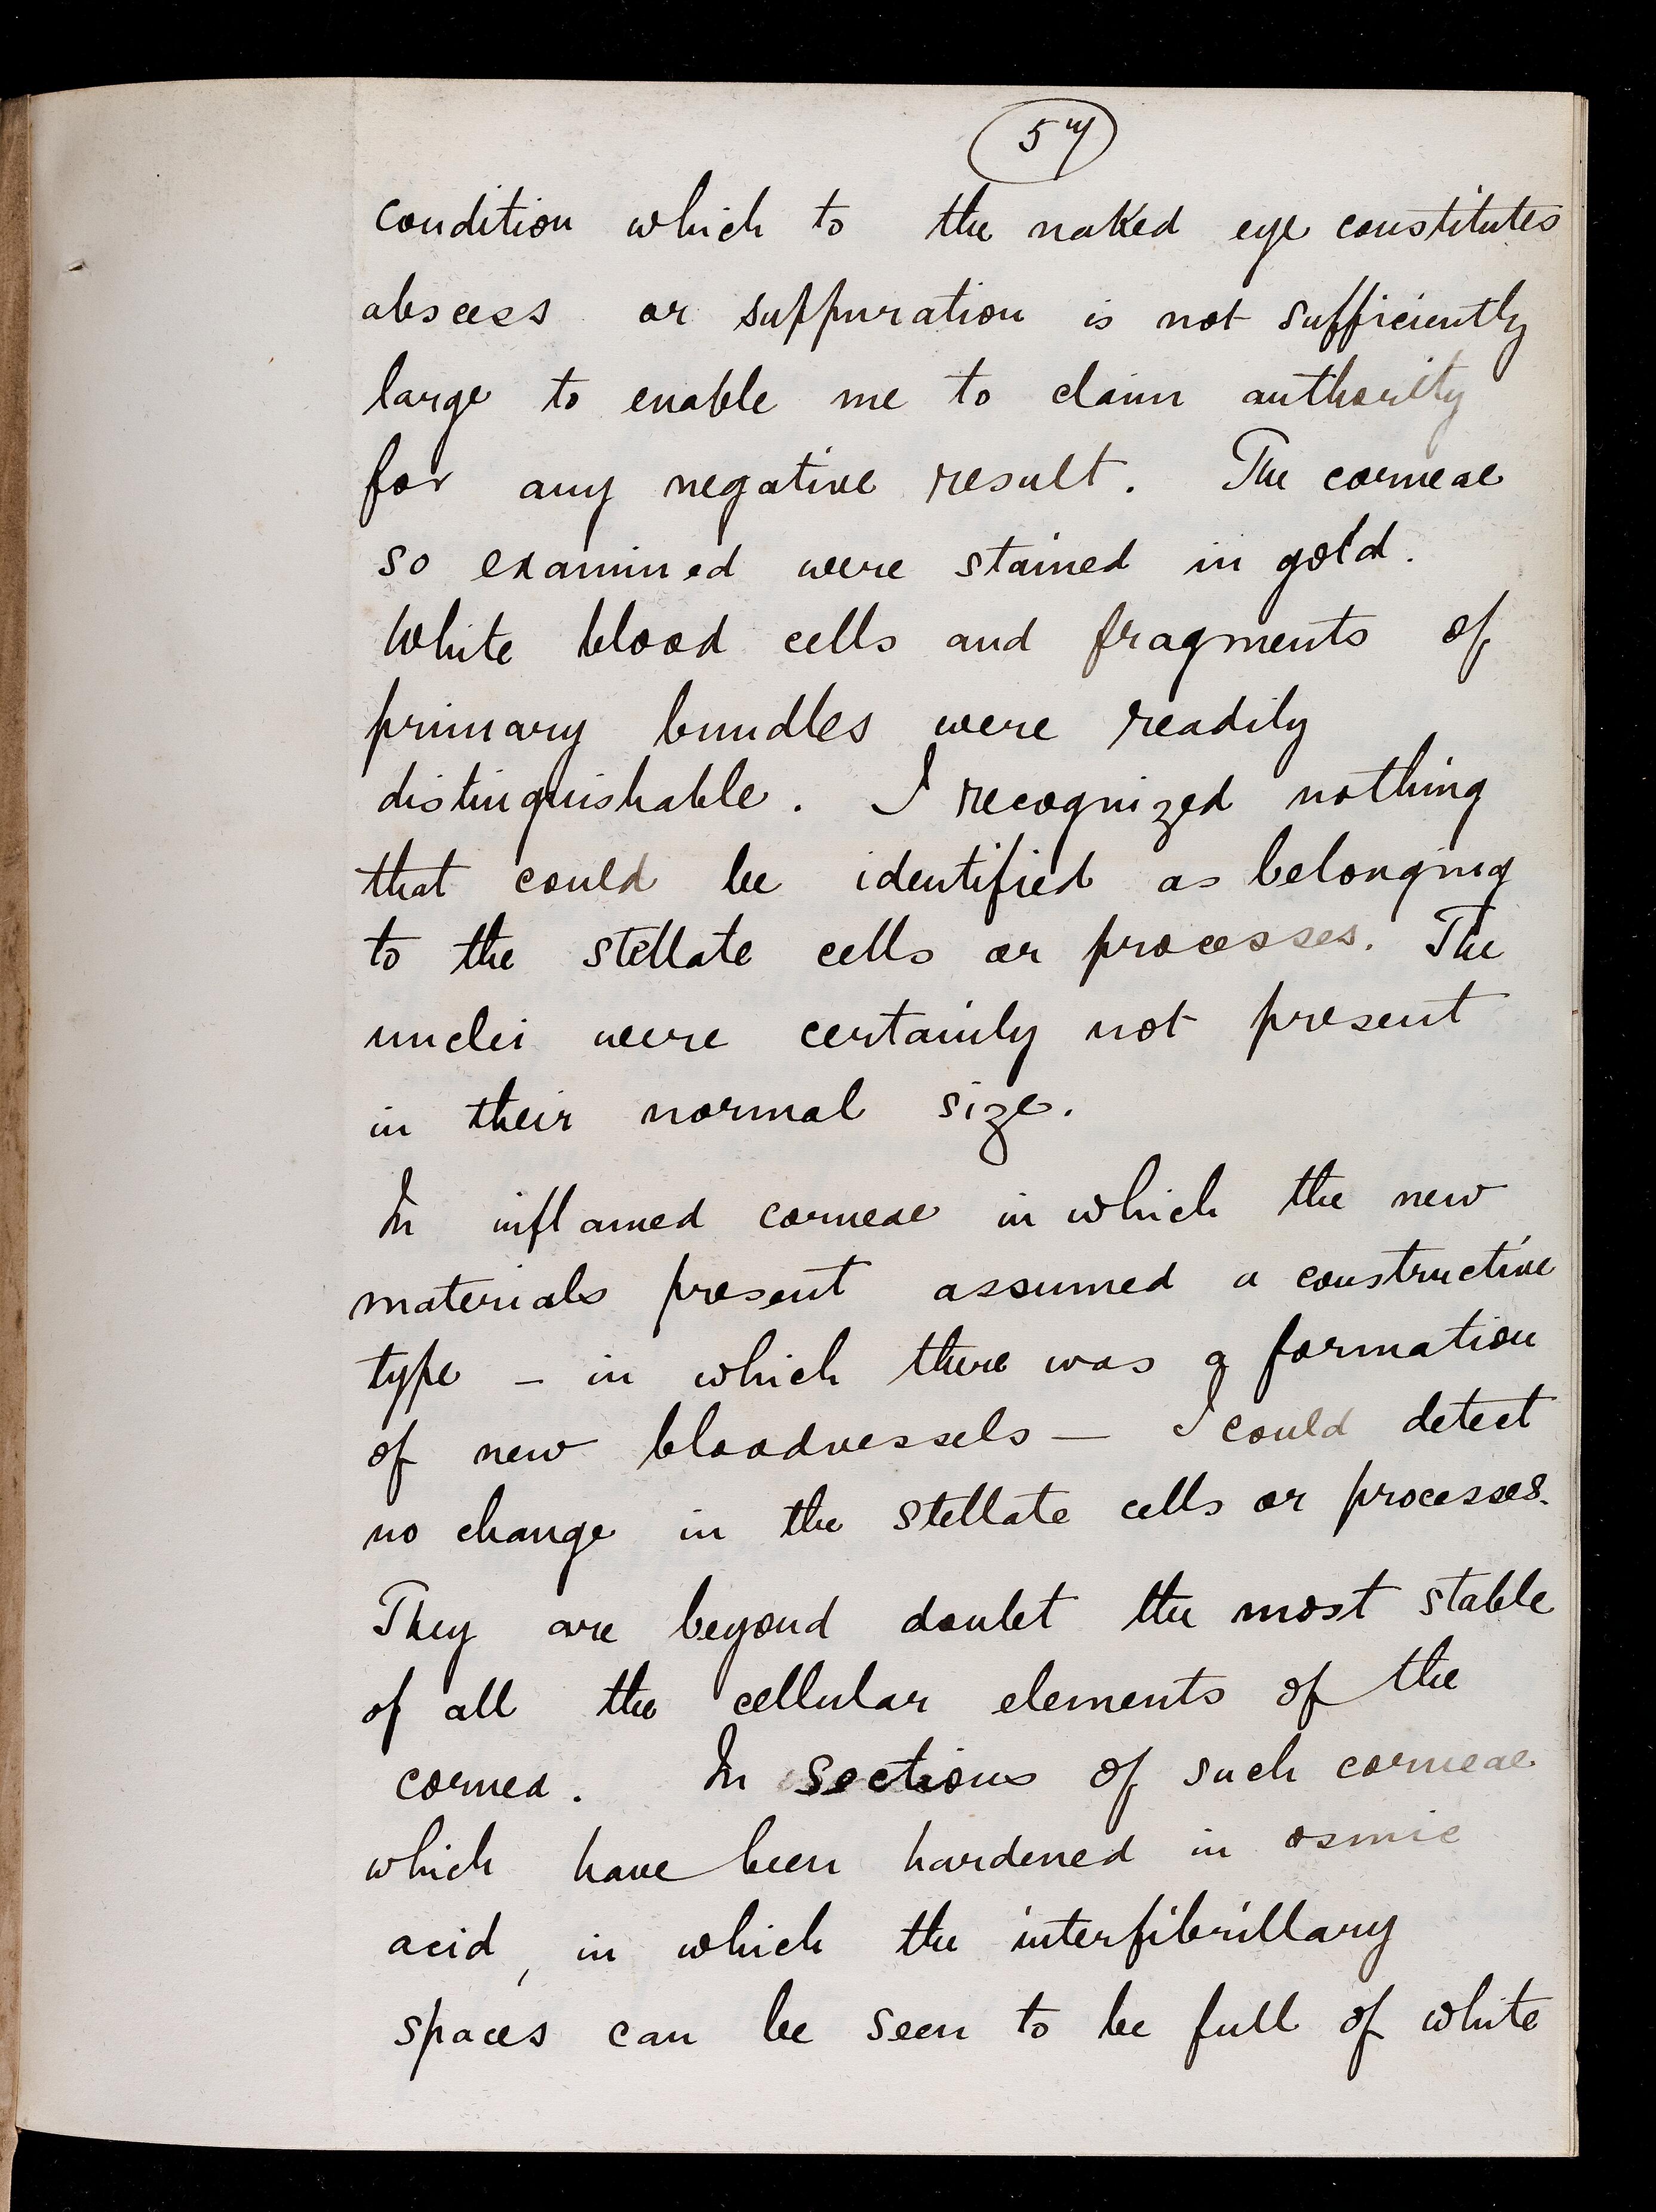 57
condition which to the naked eye constitutes
abscess or suppuration is not sufficiently
large to enable me to claim authority
for any negative result. The corneae
so examined were stained in gold.
White blood cells and fragments of
primary bundles were readily
distinguishable. I recognized nothing
that could be identified as belonging
to the stellate cells or processes. The
nuclei were certainly not present
in their normal size.
In inflamed corneae in which the new
materials present assumed a constructive
type – in which there was a formation
of new bloodvessels – I could detect
no change in the stellate cells or processes.
They are beyond doubt the most stable
of all the cellular elements of the
cornea. In sections of such corneae
which have been hardened in osmic
acid, in which the interfibrillary
spaces can be seen to be full of white